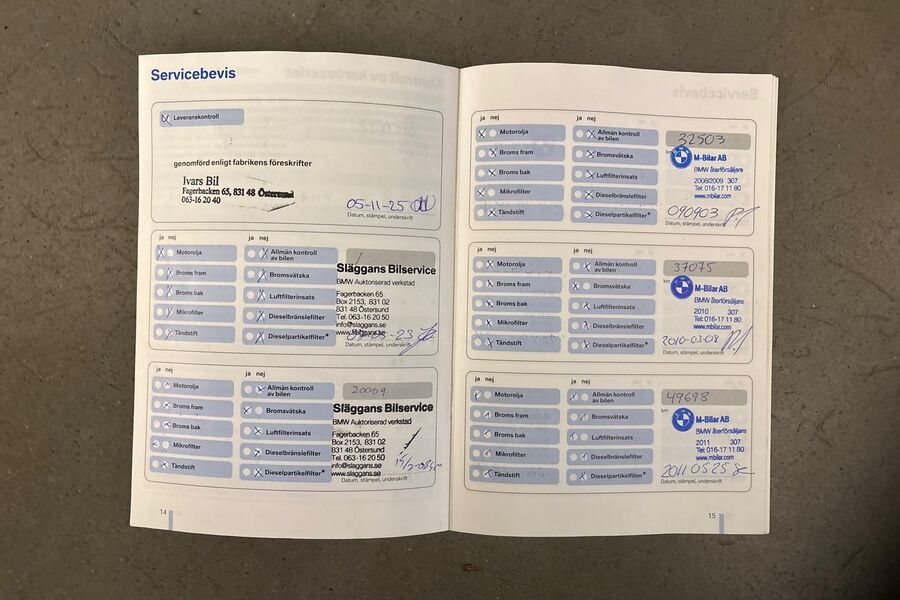 Servicebevis
Leveranskontroll
genomförd enligt fabrikens föreskrifter
Ivars Bil
Fagerbacken 65, 831 48 Östersund
063-16 20 40
05-11-25
Datum, stämpel, underskrift
ja nej
ja nej
Motorolja
Broms fram
Broms bak
Mikrofilter
Tändstift
Allmän kontroll
av bilen
Bromsvätska
Luftfilterinsats
Dieselbränslefilter
Dieselpartikelfilter*
Släggans Bilservice
BMW Auktoriserad verkstad
Fagerbacken 65
Box 2153, 831 02
831 48 Östersund
Tel. 063-16 20 50
info@slaggans.se
www.slaggans.se
Datum, stämpel, underskrift
ja nej
ja nej
Motorolja
Broms fram
Broms bak
Mikrofilter
Tändstift
Allmän kontroll
av bilen
Bromsvätska
Luftfilterinsats
Dieselbränslefilter
Dieselpartikelfilter*
Släggans Bilservice
BMW Auktoriserad verkstad
Fagerbacken 65
Box 2153, 831 02
831 48 Östersund
Tel. 063-16 20 50
info@slaggans.se
www.slaggans.se
Datum, stämpel, underskrift
14
ja nej
ja nej
Motorolja
Broms fram
Broms bak
Mikrofilter
Tändstift
Allmän kontroll
av bilen
Bromsvätska
Luftfilterinsats
Dieselbränslefilter
Dieselpartikelfilter*
32503
km
M-Bilar AB
BMW återförsäljare
2008/2009 307
Tel: 016-17 11 80
www.mbilar.com
090903
Datum, stämpel, underskrift
ja nej
ja nej
Motorolja
Broms fram
Broms bak
Mikrofilter
Tändstift
Allmän kontroll
av bilen
Bromsvätska
Luftfilterinsats
Dieselbränslefilter
Dieselpartikelfilter*
37075
km
M-Bilar AB
BMW återförsäljare
2010 307
Tel: 016-17 11 80
www.mbilar.com
2010-03-08
Datum, stämpel, underskrift
ja nej
ja nej
Motorolja
Broms fram
Broms bak
Mikrofilter
Tändstift
Allmän kontroll
av bilen
Bromsvätska
Luftfilterinsats
Dieselbränslefilter
Dieselpartikelfilter*
49698
km
M-Bilar AB
BMW återförsäljare
2011 307
Tel: 016-17 11 80
www.mbilar.com
2011 05 25
Datum, stämpel, underskrift
15